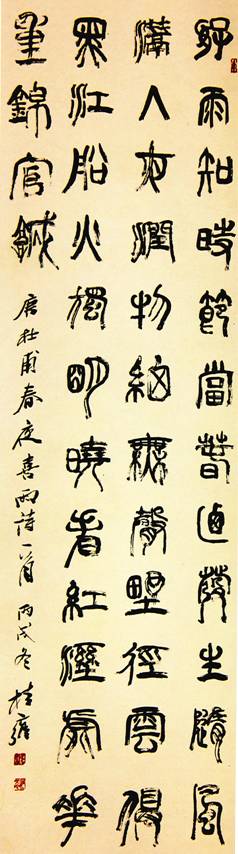 好雨知時節當春迺發生隨風
潛入夜潤物細無聲野徑雲俱
黑江船火獨明曉看紅溼處華
重錦官城
唐杜甫春夜喜雨詩一首 丙戌冬 桂